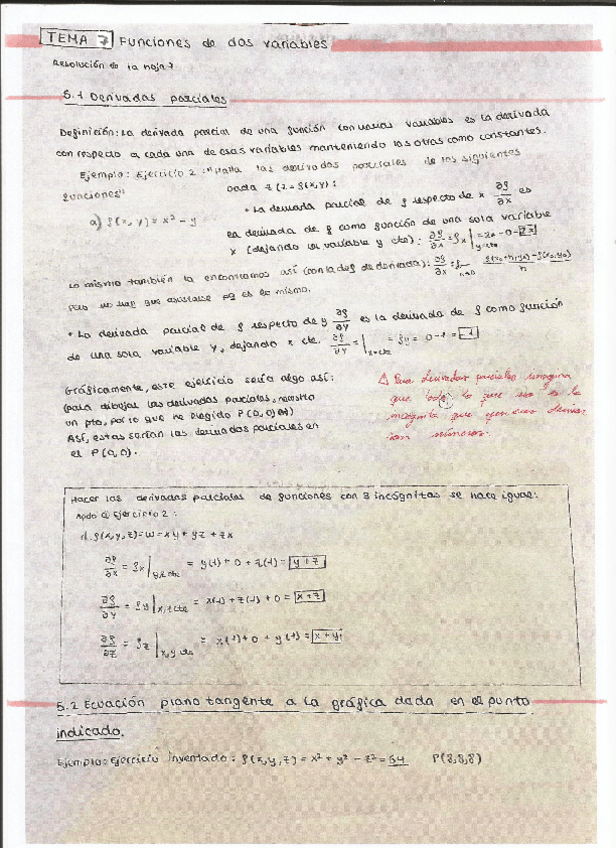 TEMA 7 Funciones de dos variables
Resolución de la hoja 7
5.1 Derivadas parciales
Definición: La derivada parcial de una función con varias variables es la derivada
con respecto a cada una de esas variables manteniendo las otras como constantes.
Ejemplo: Ejercicio 2: "Halla las derivadas parciales de las siguientes
funciones"
dada z = f(x,y):
a) f(x,y) = x² - y
• La derivada parcial de f respecto de x ∂f/∂x es
la derivada de f como función de una sola variable
x (dejando la variable y cte): ∂f/∂x = fx | y=cte = 2x - 0 = 2x
Lo mismo también la encontramos así (con la def de derivada): ∂f/∂x = f(x₀+h,y₀) - f(x₀,y₀) / h
pero no hay que es lo mismo.
• La derivada parcial de f respecto de y ∂f/∂y es la derivada de f como función
de una sola variable y, dejando x cte. ∂f/∂y = | x=cte = fy = 0 - 1 = -1
Gráficamente, este ejercicio sería algo así:
(para dibujar las derivadas parciales, necesito
un pto, por lo que he elegido P(0,0)
Así, estas serían las derivadas parciales en
el P(0,0).
⚠ Para derivadas parciales
que todo lo que no es la
incógnita que
son números.
Hacer las derivadas parciales de funciones con 3 incógnitas se hace igual:
Apdo d Ejercicio 2:
d. f(x,y,z) = w = xy + yz + zx
∂f/∂x = fx | y,z cte = y(1) + 0 + z(1) = y + z
∂f/∂y = fy | x,z cte = x(1) + z(1) + 0 = x + z
∂f/∂z = fz | x,y cte = x(1) + 0 + y(1) = x + y
5.2 Ecuación plano tangente a la gráfica dada en el punto
indicado.
Ejemplo: ejercicio inventado: f(x,y,z) = x² + y² - z² = 64 P(8,8,8)